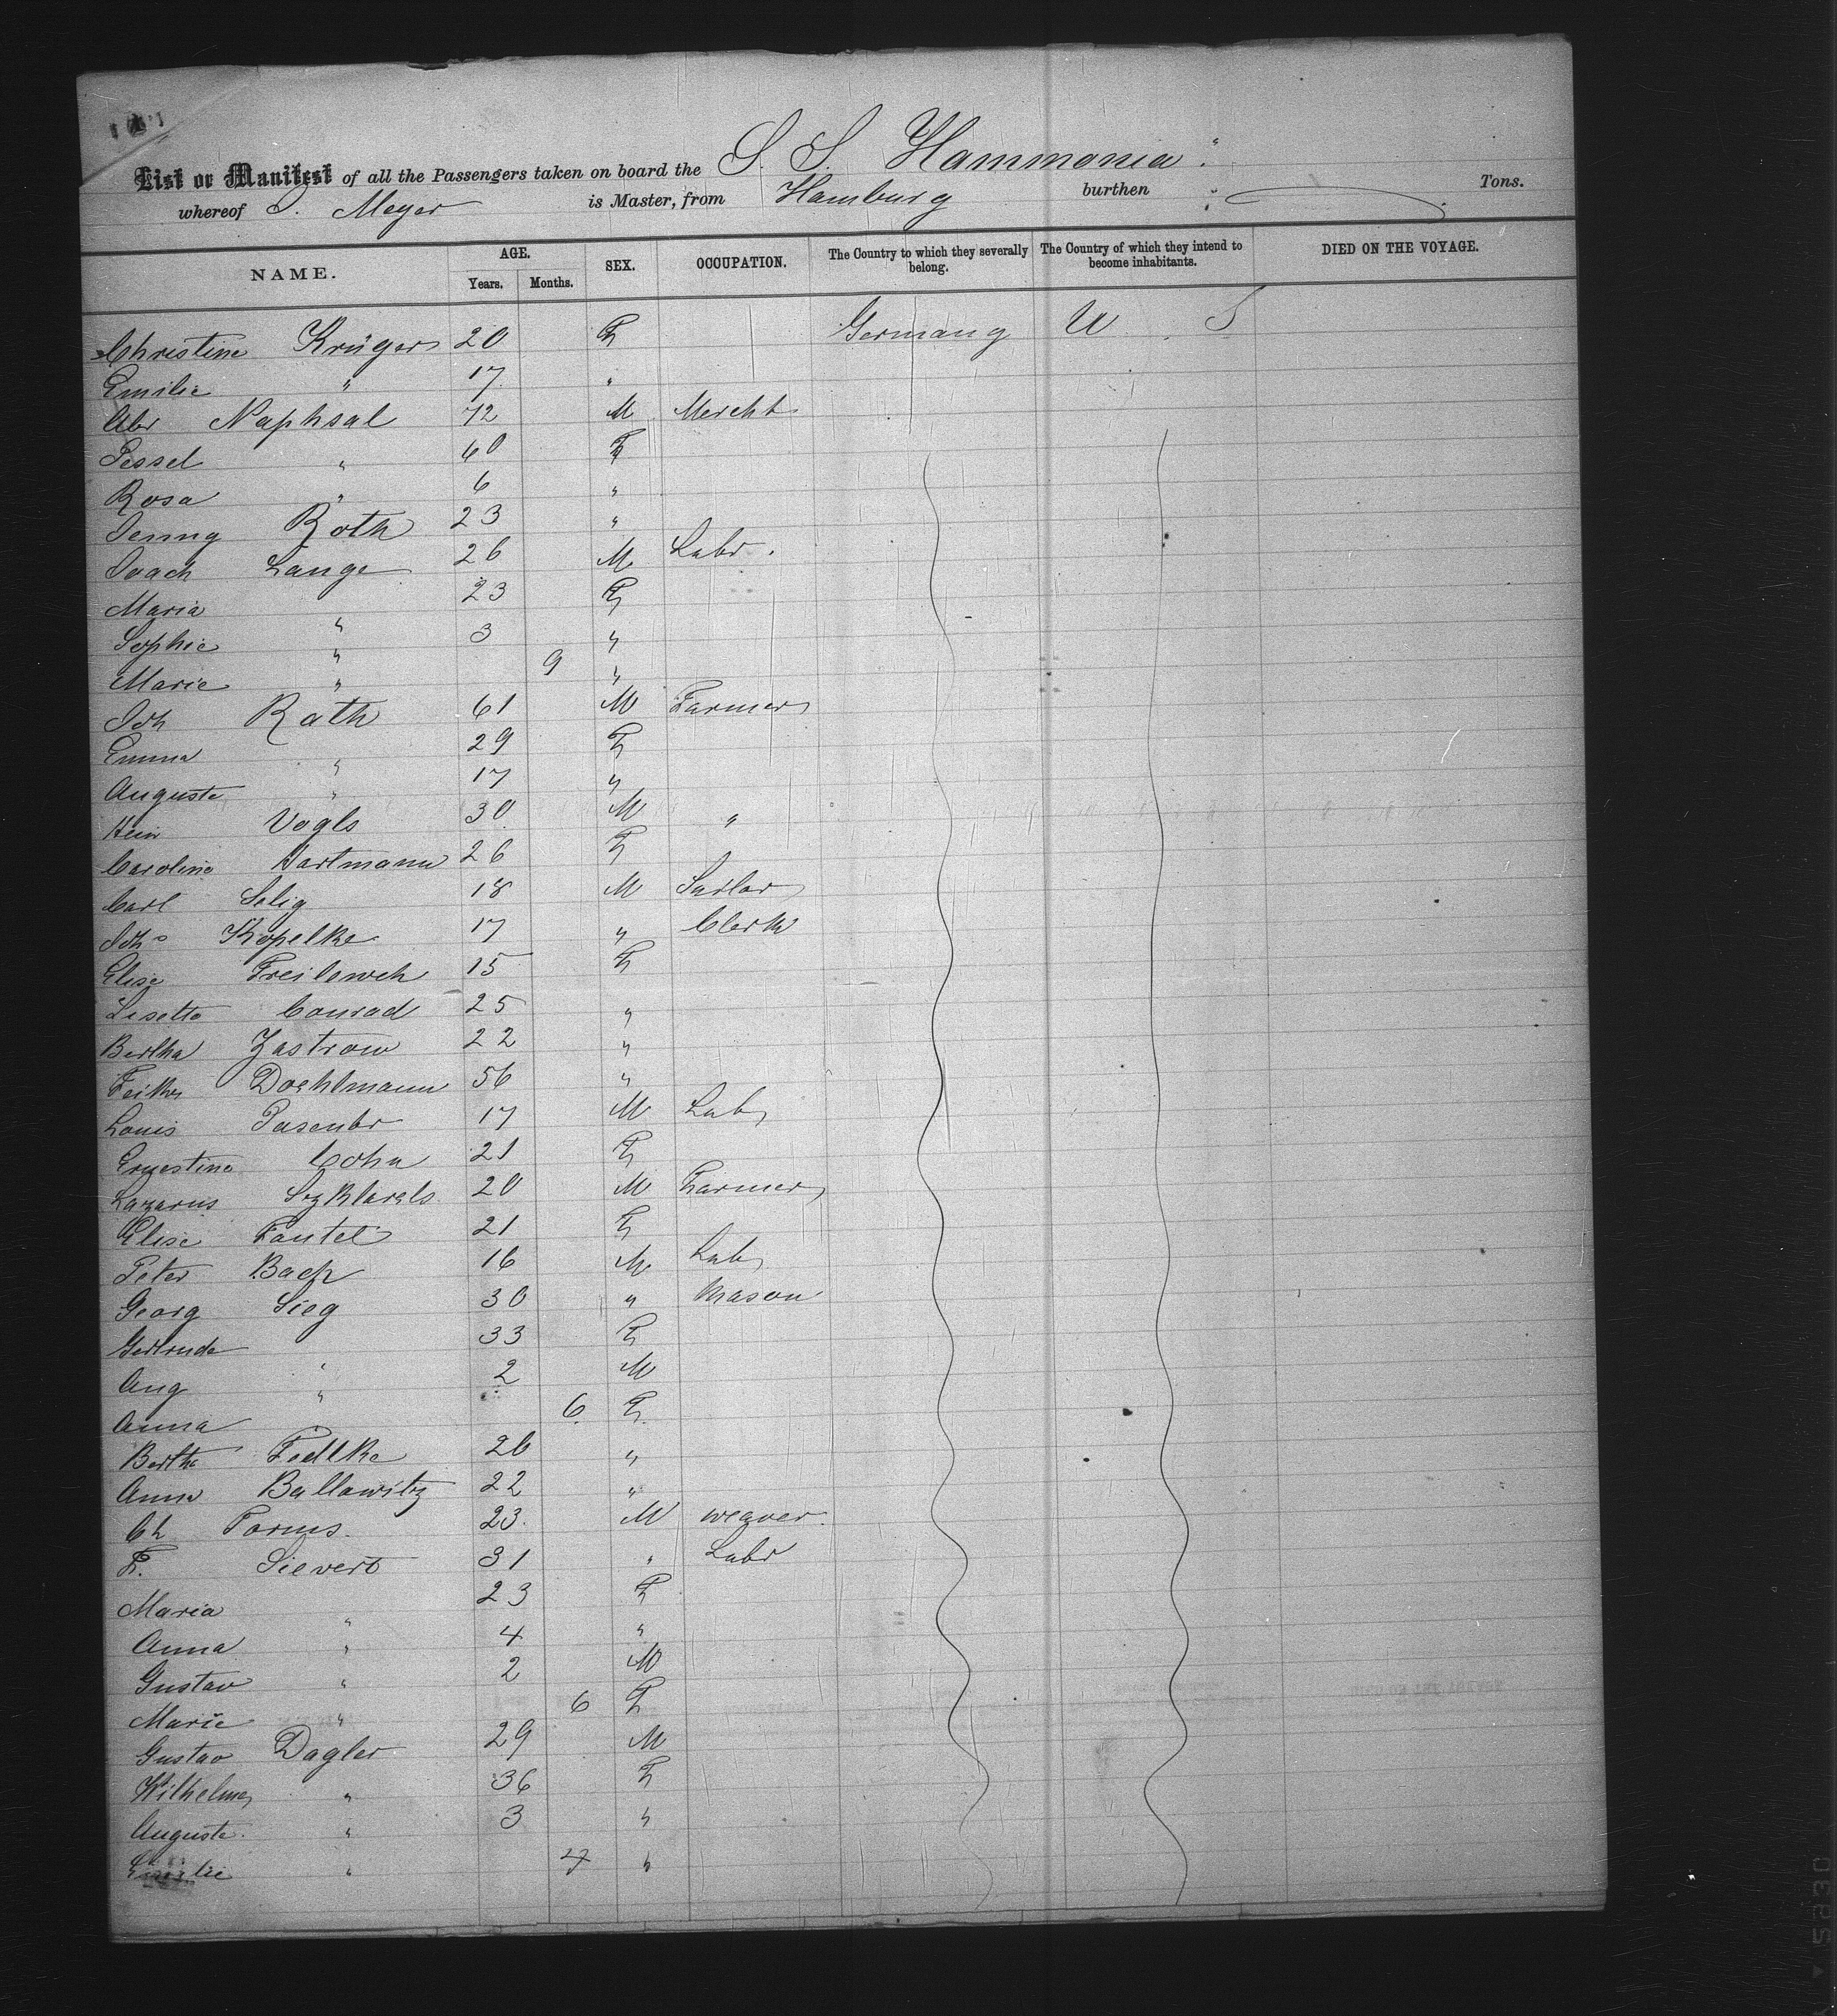 List or Manifest of all the Passengers taken on board the S. S. Hammonia
whereof Meyer is Master, from Hamburg burthen Tons.
NAME. AGE. Years. Months. SEX. OCCUPATION. The Country to which they severally belong. The Country of which they intend to become inhabitants. DIED ON THE VOYAGE.
Christine Krüger 20 F Germany U S
Emilie " 17 "
Abr Naphsal 72 M Mercht
Pessel " 60 F
Rosa " 6 "
Jenny Roth 23 "
Joach Lange 26 M Labr.
Maria " 23 F
Sophie " 3 "
Marie " 9 "
Joh Rath 61 M Farmer
Emma " 29 F
Auguste " 17 "
Hein Vogls 30 M "
Caroline Hartmann 26 F
Carl Selig 18 M
Joh Kopelke 17 " Clerk
Elise 15 F
Lisette Conrad 25 "
Bertha Zastrow 22 "
Doehlmann 56 "
Louis 17 M Lab
Ernestine Cohn 21 F
Lazarus 20 M Farmer
Elise Fautel 21 F
Peter Bach 16 M Lab
Georg Sieg 30 " Mason
Gertrude " 33 F
Aug " 2 M
Anna 6 F
Bertha Fedtke 26 "
Anna Ballawitz 22 "
Ch 23. M weaver
F. Sievert 31 " Labr
Maria " 23 F
Anna " 4 "
Gustav " 2 M
Marie " 6 F
Gustav Dagler 29 M
Wilhelme " 36 F
Auguste. " 3 "
Emilie " 4 "
5830